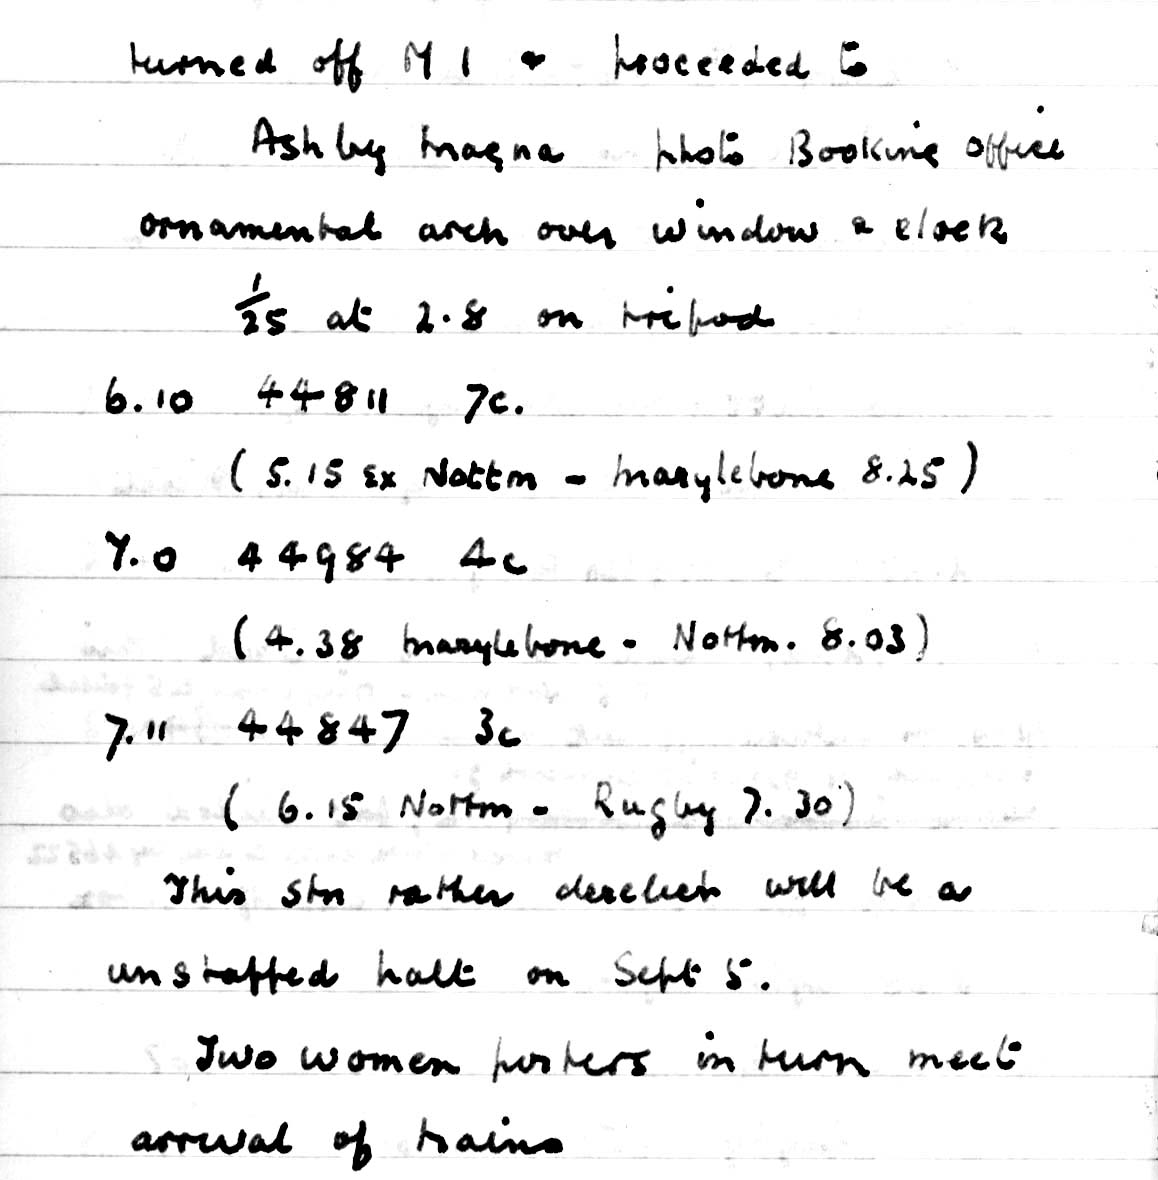 turned off M1 & proceeded to
Ashby Magna photo Booking office
ornamental arch over window & clock
1/25 at 2.8 on tripod
6.10 44811 7c.
(5.15 Ex Nottm - Marylebone 8.25)
7.0 44984 4c
(4.38 Marylebone - Nottm. 8.03)
7.11 44847 3c
(6.15 Nottm - Rugby 7.30)
This stn rather derelict will be a
unstaffed halt on Sept 5.
Two women porters in turn meet
arrival of trains